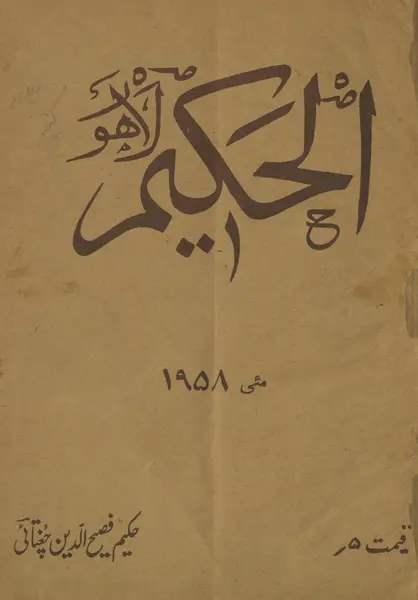 الحکیم لاہور
مئی ۱۹۵۸
قیمت ۵؍
حکیم فصیح الدین چغتائی